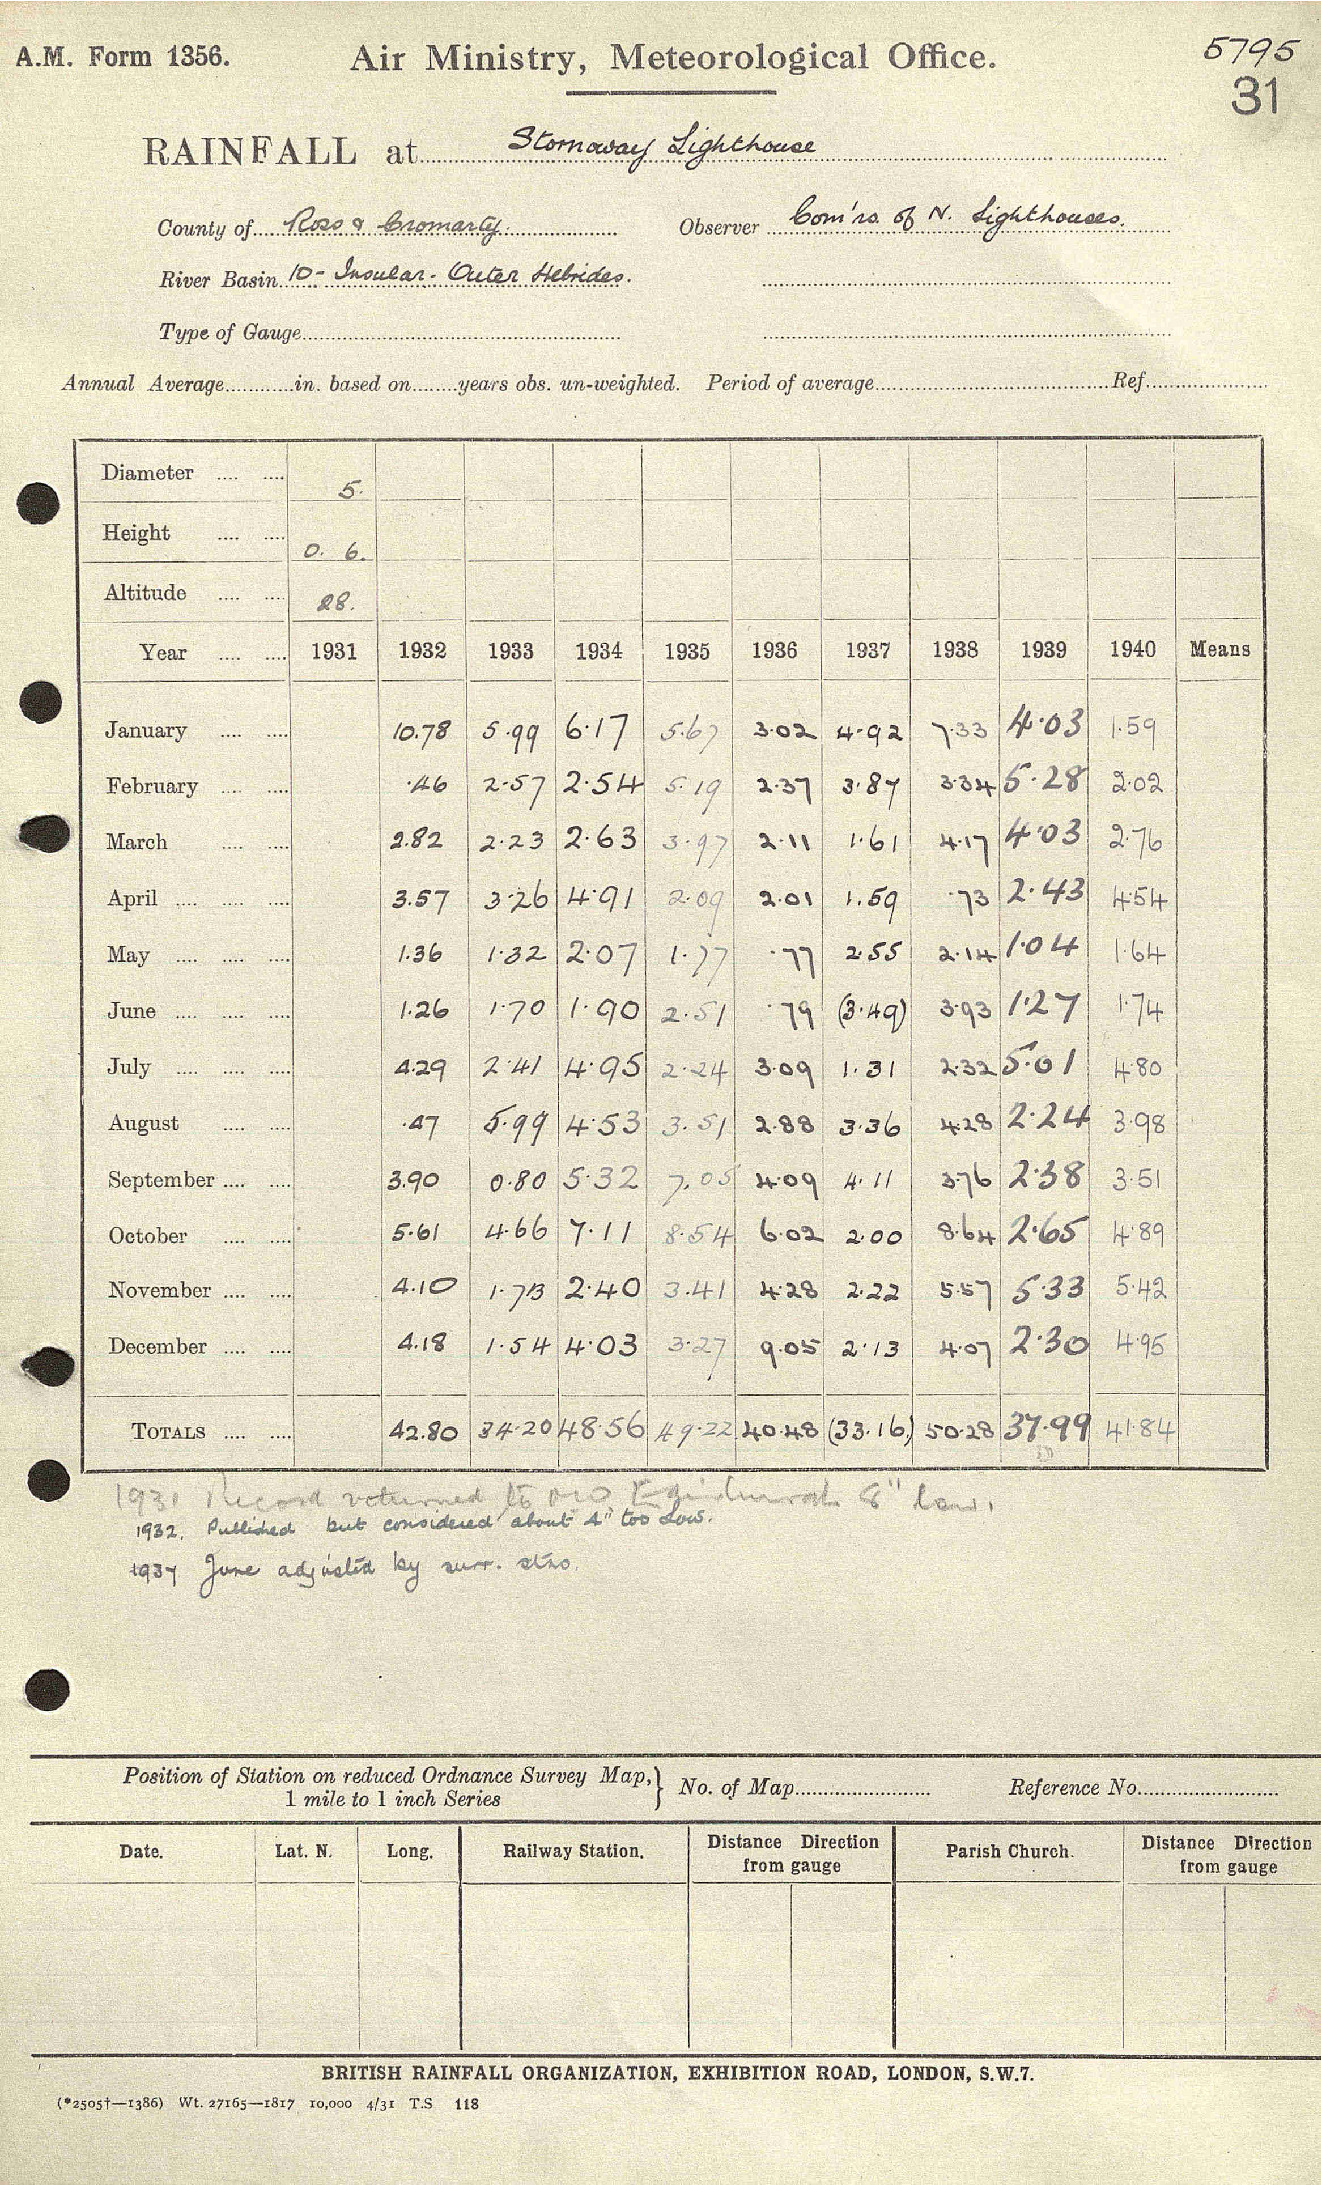 A.M. Form 1356. Air Ministry, Meteorological Office. 5795
31
RAINFALL at Stornoway Lighthouse
County of Ross & Cromarty. Observer Com'rs. of N. Lighthouses.
River Basin 10 - Insular - Outer Hebrides.
Type of Gauge
Annual Average in. based on years obs. un-weighted. Period of average Ref
Diameter .... .... 5.
Height .... .... 0. 6.
Altitude .... .... 28.
Year .... .... 1931 1932 1933 1934 1935 1936 1937 1938 1939 1940 Means
January .... .... 10.78 5.99 6.17 5.67 3.02 4.92 7.33 4.03 1.59
February .... .... .46 2.57 2.54 5.19 2.37 3.87 3.34 5.28 2.02
March .... .... 2.82 2.23 2.63 3.97 2.11 1.61 4.17 4.03 2.76
April .... .... .... 3.57 3.26 4.91 2.09 2.01 1.59 .73 2.43 4.54
May .... .... .... 1.36 1.32 2.07 1.77 .77 2.55 2.14 1.04 1.64
June .... .... .... 1.26 1.70 1.90 2.51 .79 (3.49) 3.93 1.27 1.74
July .... .... .... 4.29 2.41 4.95 2.24 3.09 1.31 2.32 5.01 4.80
August .... .... .47 5.99 4.53 3.51 2.88 3.36 4.28 2.24 3.98
September .... .... 3.90 0.80 5.32 7.05 4.09 4.11 3.76 2.38 3.51
October .... .... 5.61 4.66 7.11 8.54 6.02 2.00 8.64 2.65 4.89
November .... .... 4.10 1.73 2.40 3.41 4.28 2.22 5.57 5.33 5.42
December .... .... 4.18 1.54 4.03 3.27 9.05 2.13 4.07 2.30 4.95
TOTALS .... .... 42.80 34.20 48.56 49.22 40.48 (33.16) 50.28 37.99 41.84
1931 Record returned to M O Edinburgh 8" low.
1932. Published but considered about 4" too low.
1937 June adjusted by surr. stns.
Position of Station on reduced Ordnance Survey Map, } No. of Map Reference No.
1 mile to 1 inch Series
Date. Lat. N. Long. Railway Station. Distance Direction from gauge Parish Church. Distance Direction from gauge
BRITISH RAINFALL ORGANIZATION, EXHIBITION ROAD, LONDON, S.W.7.
(*2505†—1386) Wt. 27165—1817 10,000 4/31 T.S 118